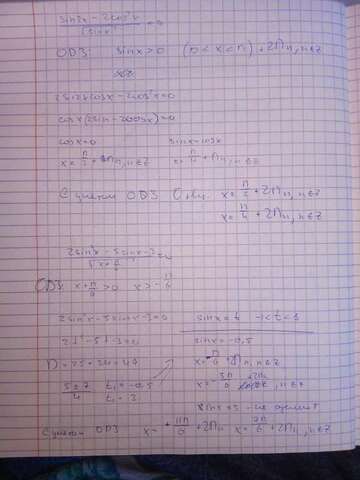 sin2x - 2cos²x / √sinx = 0
ОДЗ: sinx>0 (0<x<π)+2πn, n∈Z
2sinxcosx - 2cos²x=0
cosx(2sin - 2cosx)=0
cosx=0 sinx=cosx
x=π/2+πn, n∈Z x=π/4+πn, n∈Z
С учетом ОДЗ Ответ: x=π/2+2πn, n∈Z
x=π/4+2πn, n∈Z
2sin²x-5sinx-3
ОДЗ: x+π/6>0 x>-π/6
2sin²x-5sinx-3=0 sinx=t -1<t<1
2t²-5t-3=0 sinx=-0,5
D=25+24=49
5±7 / 4 t₁=-0,5
t₂=3
sinx=3 -не
С учетом ОДЗ x=11π/6+2πn x=7π/6+2πn, n∈Z